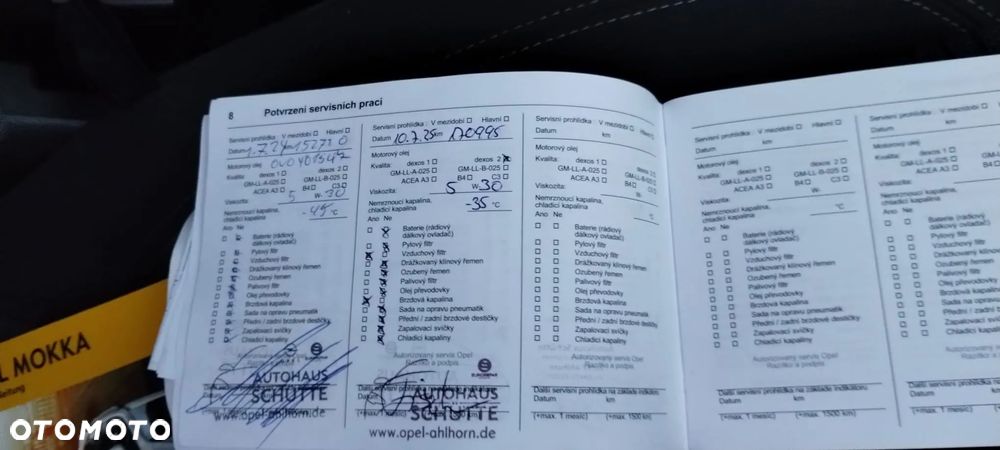 8 Potvrzení servisních prací
Servisní prohlídka : V mezidobí Hlavní
Datum 1.7.24 km
Motorový olej
Kvalita: dexos 1 dexos 2
GM-LL-A-025 GM-LL-B-025
ACEA A3 B4 C3
Viskozita: 5 W- 30
Nemrznoucí kapalina,
chladicí kapalina -45 °C
Ano Ne
Baterie (rádiový
dálkový ovladač)
Pylový filtr
Vzduchový filtr
Drážkovaný klínový řemen
Ozubený řemen
Palivový filtr
Olej převodovky
Brzdová kapalina
Sada na opravu pneumatik
Přední / zadní brzdové destičky
Zapalovací svíčky
Chladicí kapalina
AUTOHAUS
SCHÜTTE
www.opel-ahlhorn.de
Servisní prohlídka : V mezidobí Hlavní
Datum 10.7.25 km 170995
Motorový olej
Kvalita: dexos 1 dexos 2
GM-LL-A-025 GM-LL-B-025
ACEA A3 B4 C3
Viskozita: 5 W- 30
Nemrznoucí kapalina,
chladicí kapalina -35 °C
Ano Ne
Baterie (rádiový
dálkový ovladač)
Pylový filtr
Vzduchový filtr
Drážkovaný klínový řemen
Ozubený řemen
Palivový filtr
Olej převodovky
Brzdová kapalina
Sada na opravu pneumatik
Přední / zadní brzdové destičky
Zapalovací svíčky
Chladicí kapaliny
Autorizovaný servis Opel
Razítko a podpis
AUTOHAUS
SCHÜTTE
www.opel-ahlhorn.de
Servisní prohlídka : V mezidobí Hlavní
Datum km
Motorový olej
Kvalita: dexos 1 dexos 2
GM-LL-A-025 GM-LL-B-025
ACEA A3 B4 C3
Viskozita: W-
Nemrznoucí kapalina,
chladicí kapalina °C
Ano Ne
Baterie (rádiový
dálkový ovladač)
Pylový filtr
Vzduchový filtr
Drážkovaný klínový řemen
Ozubený řemen
Palivový filtr
Olej převodovky
Brzdová kapalina
Sada na opravu pneumatik
Přední / zadní brzdové destičky
Zapalovací svíčky
Chladicí kapaliny
Autorizovaný servis Opel
Razítko a podpis
Další servisní prohlídka na základě indikátoru
Datum km
(+max. 1 měsíc) (+max. 1500 km)
Servisní prohlídka : V mezidobí Hlavní
Datum km
Motorový olej
Kvalita: dexos 1 dexos 2
GM-LL-A-025 GM-LL-B-025
ACEA A3 B4 C3
Viskozita: W-
Nemrznoucí kapalina,
chladicí kapalina °C
Ano Ne
Baterie (rádiový
dálkový ovladač)
Pylový filtr
Vzduchový filtr
Drážkovaný klínový řemen
Ozubený řemen
Palivový filtr
Olej převodovky
Brzdová kapalina
Sada na opravu pneumatik
Přední / zadní brzdové destičky
Zapalovací svíčky
Chladicí kapaliny
Autorizovaný servis Opel
Razítko a podpis
Další servisní prohlídka na základě indikátoru
Datum km
(+max. 1 měsíc) (+max. 1500 km)
Servisní prohlídka
Datum
Motorový olej
Kvalita:
Viskozita:
Nemrznoucí kapalina,
chladicí kapalina
Ano Ne
L MOKKA
OTOMOTO